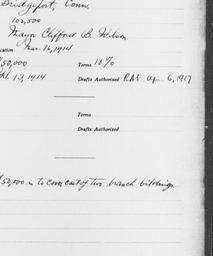 Bridgeport, Conn.
102,500
Mayor Clifford B. Wilson
cation Mar. 16, 1914
50,000 Terms 10%
13, 1914 Drafts Authorized R.A.F. Apr. 6, 1917
Terms
Drafts Authorized
$50,000 is to cover cost of two branch bildings